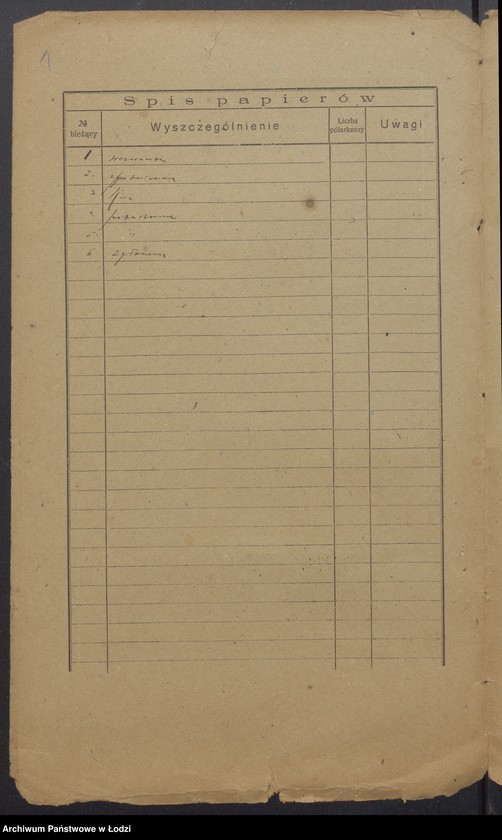 1
Spis papierów
№ bieżący Wyszczególnienie Liczba półarkuszy Uwagi
1 wezwanie
2
3
4
5 "
6 zgłoszenie
Archiwum Państwowe w Łodzi